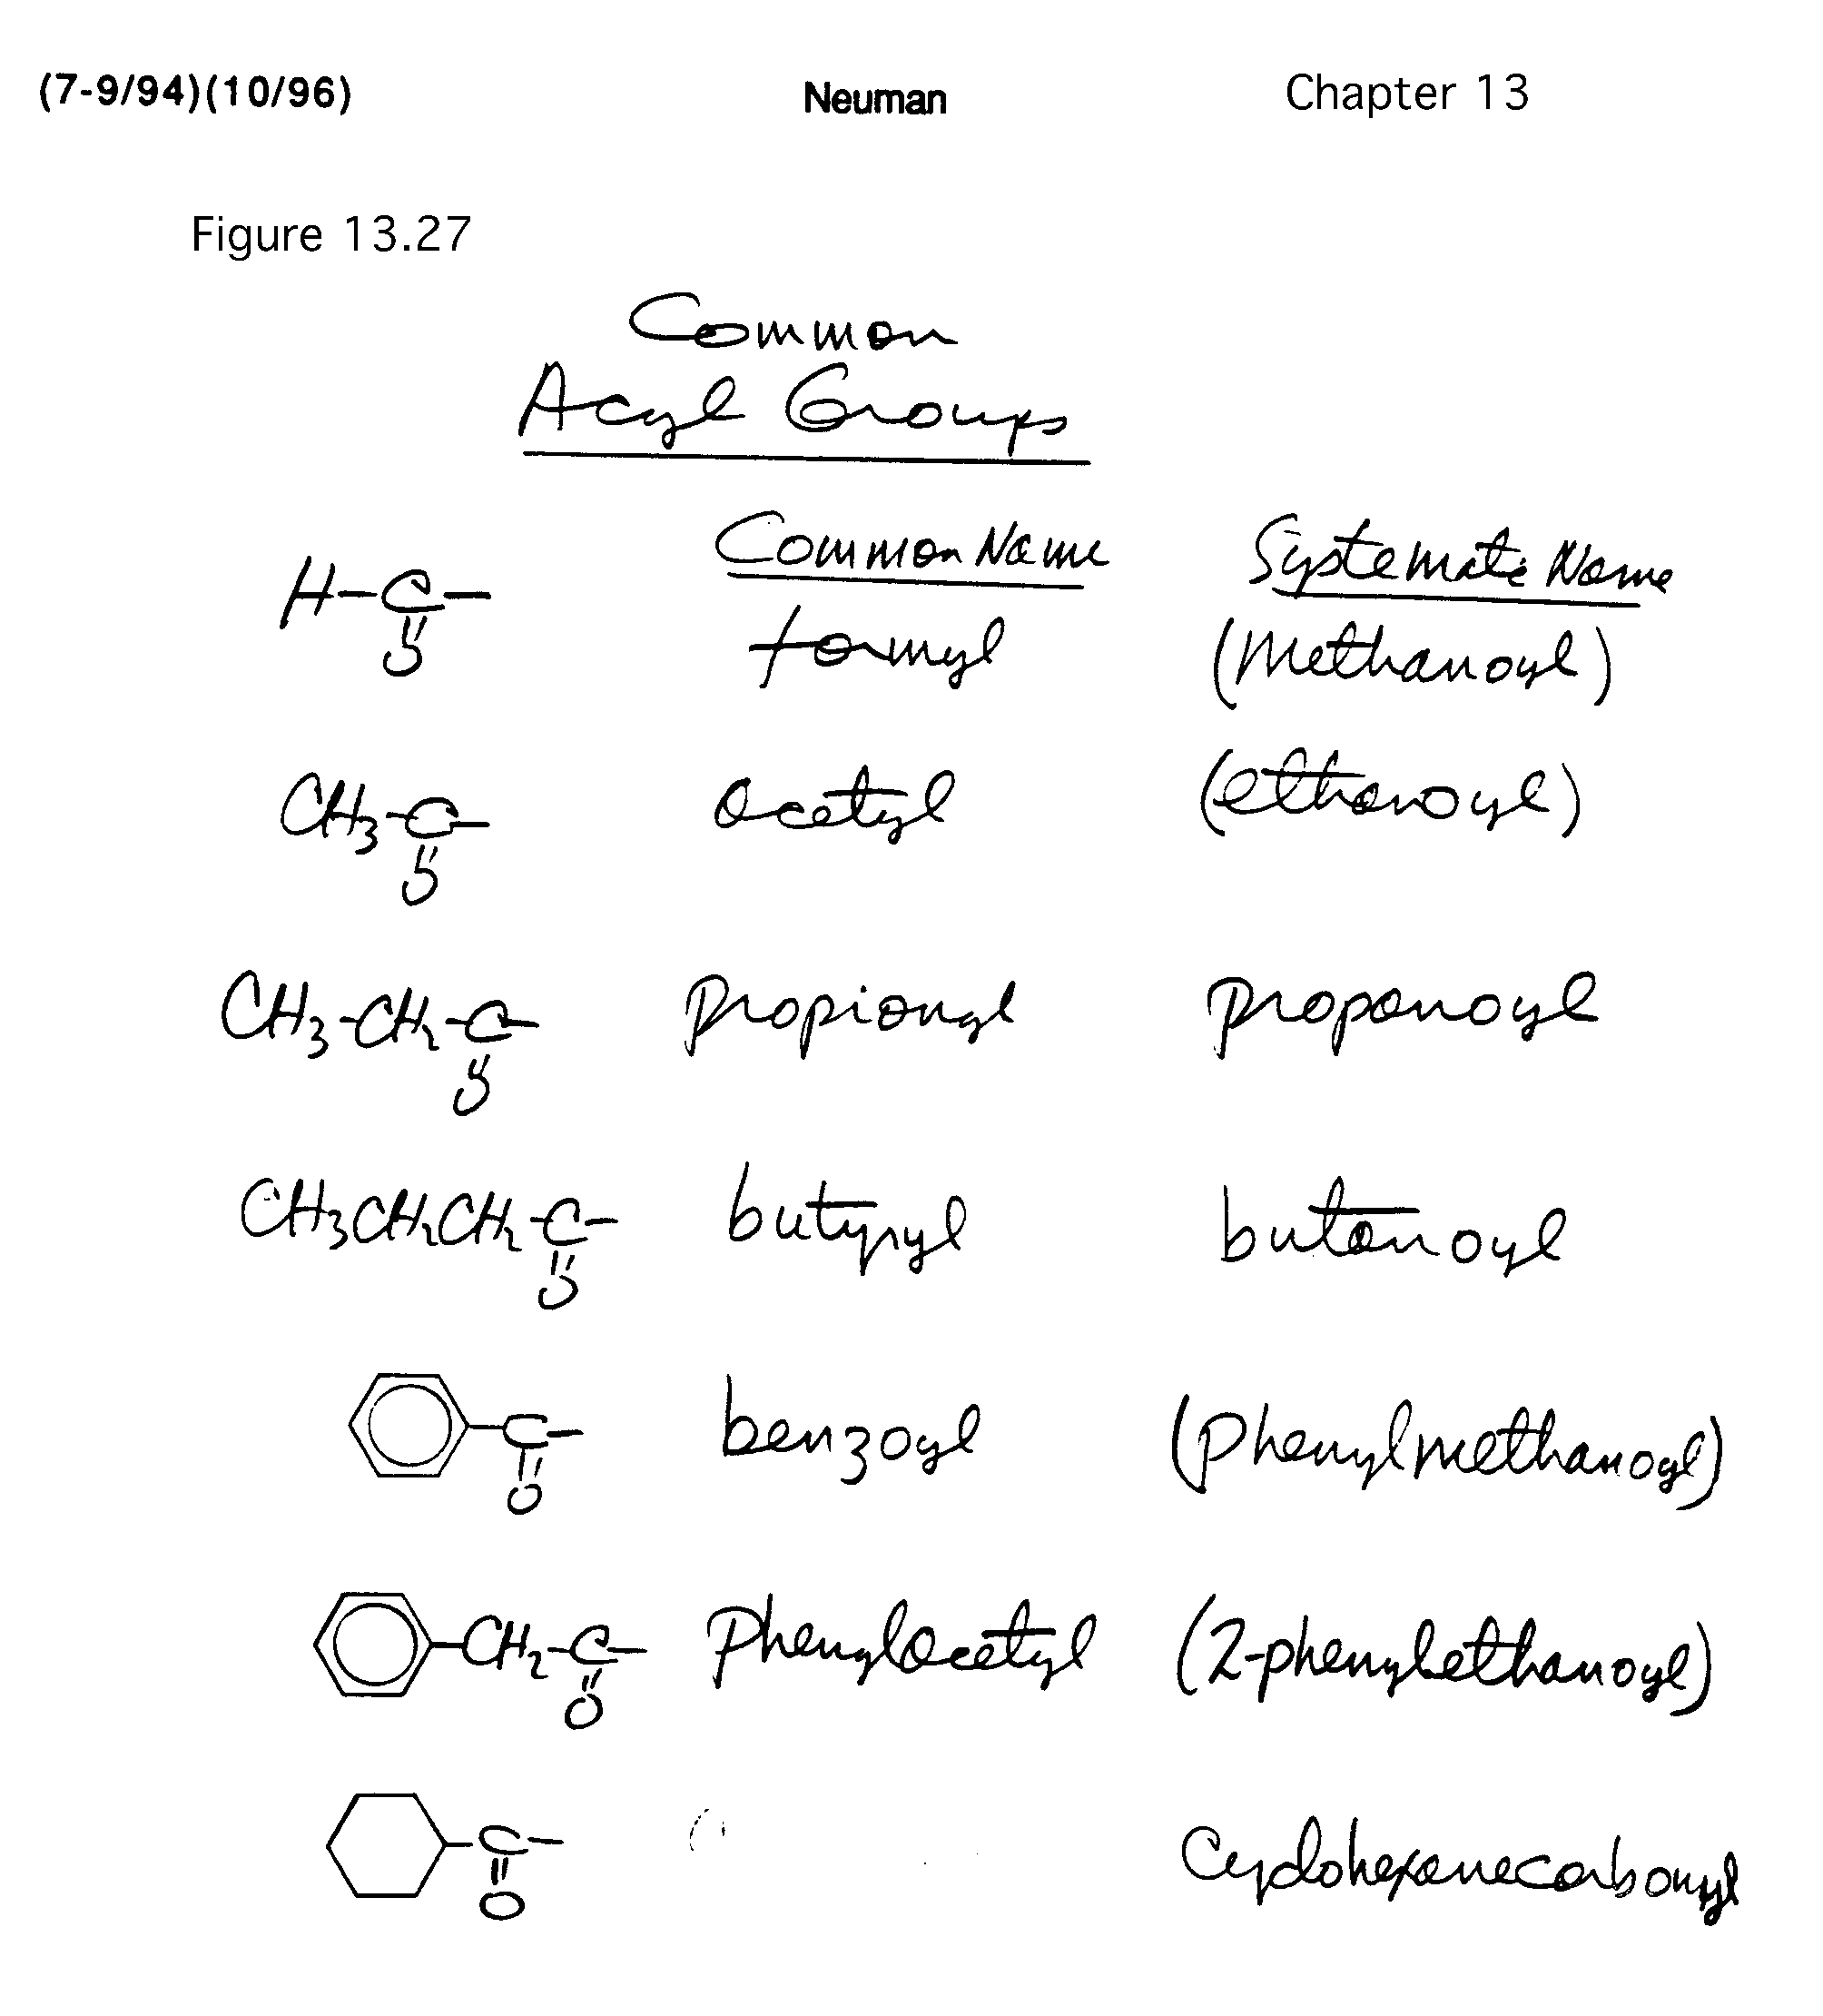 (7-9/94)(10/96) Neuman Chapter 13
Figure 13.27
Common
Acyl Groups
Common Name Systematic Name
H-C- formyl (methanoyl)
O
CH3-C- acetyl (ethanoyl)
O
CH3-CH2-C- propionyl propanoyl
O
CH3CH2CH2-C- butyryl butanoyl
O
C- benzoyl (phenylmethanoyl)
O
CH2-C- Phenylacetyl (2-phenylethanoyl)
O
C- Cyclohexanecarbonyl
O